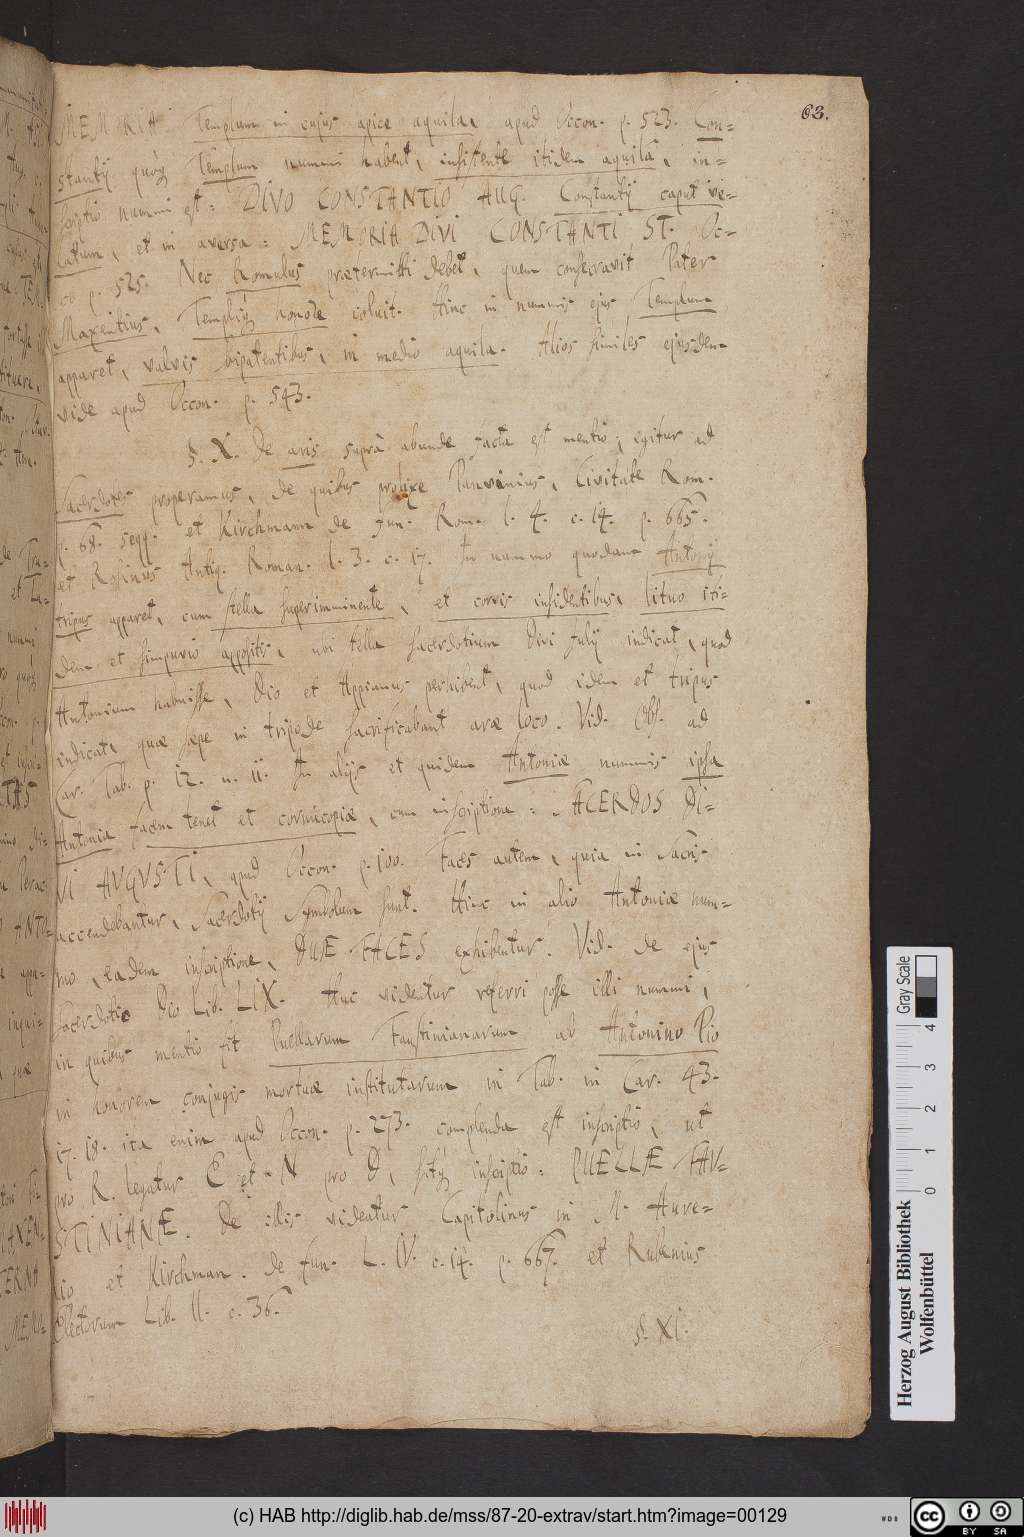 63.
MEMORIA. Templum in cujus apice aquila, apud Occon. p. 523. Con=
stantij quoq3 Templum nummi habent, insistente itidem aquila, in=
scriptio nummi est: DIVO CONSTANTIO AUG. Constantij caput ve=
latum, et in aversa: MEMORIA DIVI CONSTANTI ST. Oc=
co p. 525. Nec Romulus prætermitti debet, quem consecravit Pater
Maxentius, Templiq3 honore coluit. Hinc in nummis ejus Templum
apparet, valvis bipatentibus, in medio aquila. Alios similes ejusdem
vide apud Occon. p. 543.
§. X. De aris suprà abunde facta est mentio; igitur ad
Sacerdotes properamus, de quibus prolixe Panvinius, Civitate Rom.
p. 68. seqq. et Kirchmann de fun. Rom. l. 4. c. 14. p. 665.
et Rosinus Antiq. Roman. l. 3. c. 17. In nummo quodam Antonij
tripus apparet, cum stella superimminente, et corvis insidentibus, lituo iti=
dem et simpuvio appositis, ubi stella sacerdotium Divi Julij indicat, quod
Antonium habuisse, Dio et Appianus perhibent, quod idem et tripus
indicat, quæ sæpe in tripode sacrificabant aræ loco. Vid. Obs. ad
Car. Tab. p. 12. n. 11. In alijs et quidem Antoniæ nummis ipsa
Antonia facem tenet et cornucopiæ, cum inscriptione: SACERDOS DI=
VI AUGUSTI, apud Occon. p. 100. Faces autem, quia in Sacris
accendebantur, Sacerdotij Symbolum sunt. Hinc in alio Antoniæ num=
mo, eadem inscriptione, DUÆ FACES exhibentur. Vid. de ejus
sacerdotio Dio Lib. LIX. Huc videntur referri posse illi nummi,
in quibus mentio fit Puellarum Faustinianarum ab Antonino Pio
in honorem conjugis mortuæ institutarum in Tab. in Car. 43.
17. 18. ita enim apud Occon. p. 273. complenda est inscriptio, ut
pro R. legatur E et N pro D, sitq3 inscriptio: PUELLÆ FAU=
STINIANÆ. De illis videatur Capitolinus in M. Aure=
lio et Kirchman. de fun. L. IV. c. 14. p. 667. et Rubenius
Electorum Lib. II. c. 36.
§. XI.
Gray Scale
0 1 2 3 4
Herzog August Bibliothek
Wolfenbüttel
(c) HAB http://diglib.hab.de/mss/87-20-extrav/start.htm?image=00129
cc BY SA